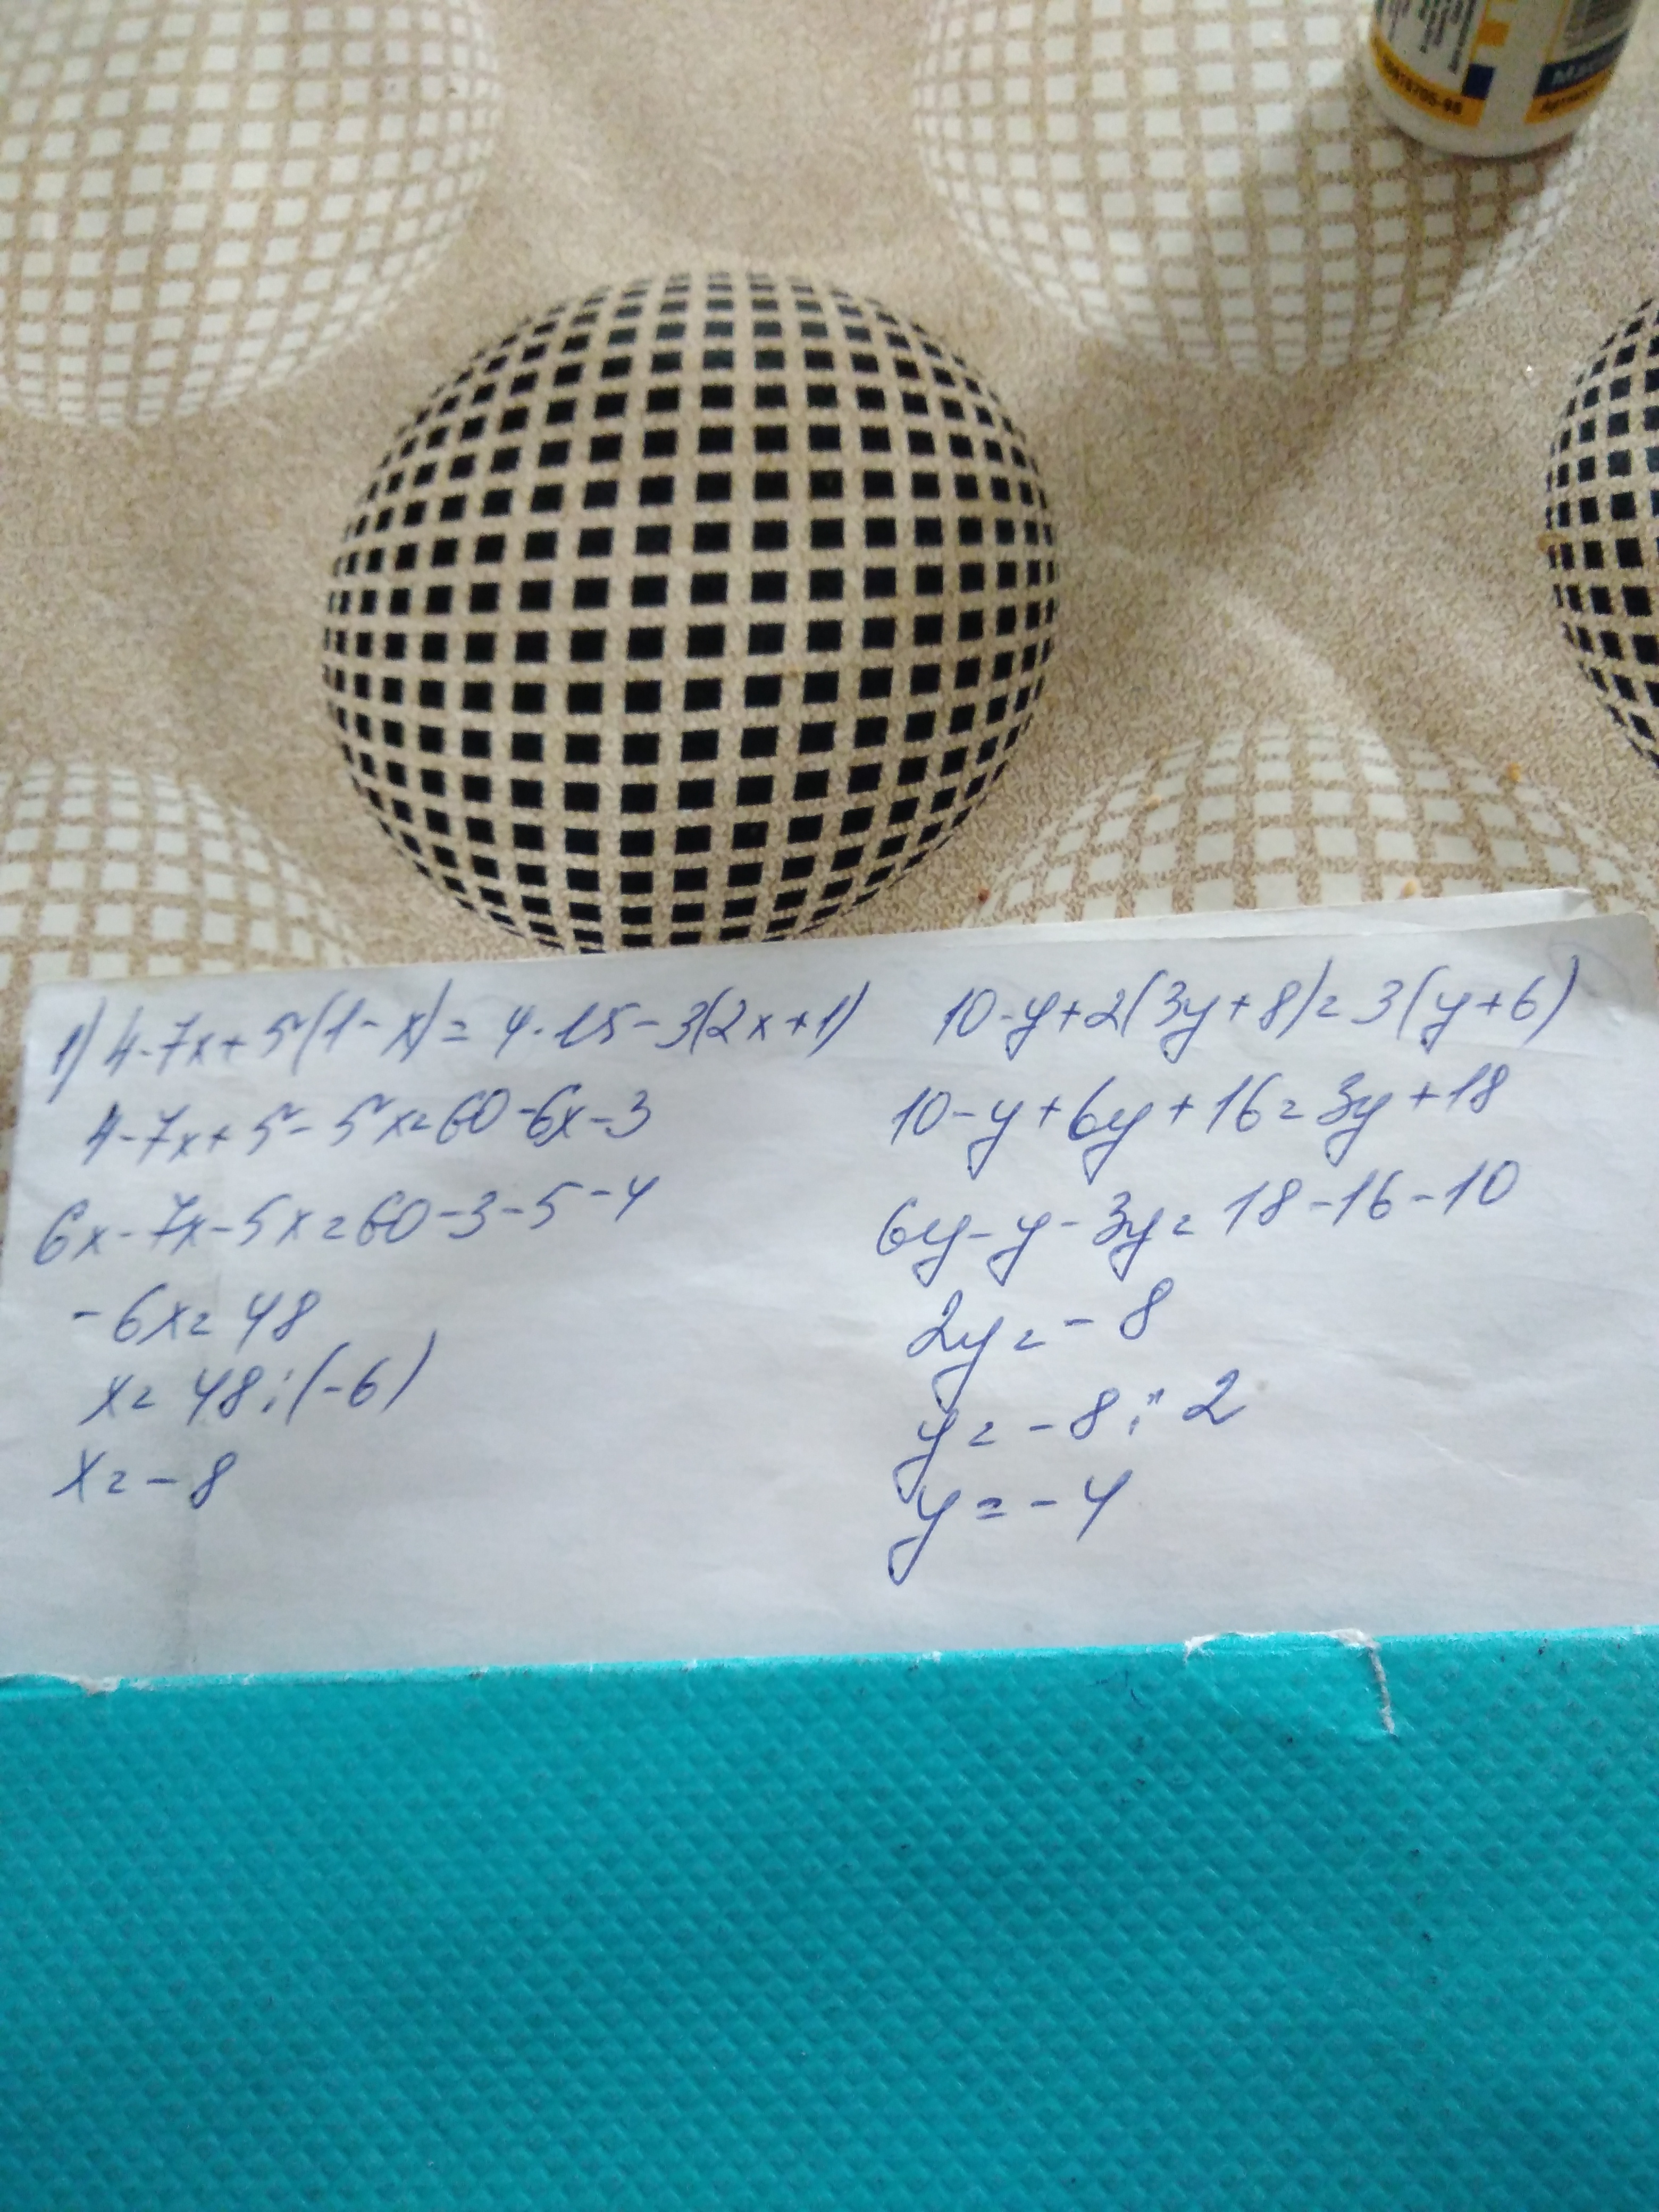 1) 4-7x+5(1-x)=4·15-3(2x+1)
4-7x+5-5x=60-6x-3
6x-7x-5x=60-3-5-4
-6x=48
x=48:(-6)
x=-8
10-y+2(3y+8)=3(y+6)
10-y+6y+16=3y+18
6y-y-3y=18-16-10
2y=-8
y=-8:2
y=-4